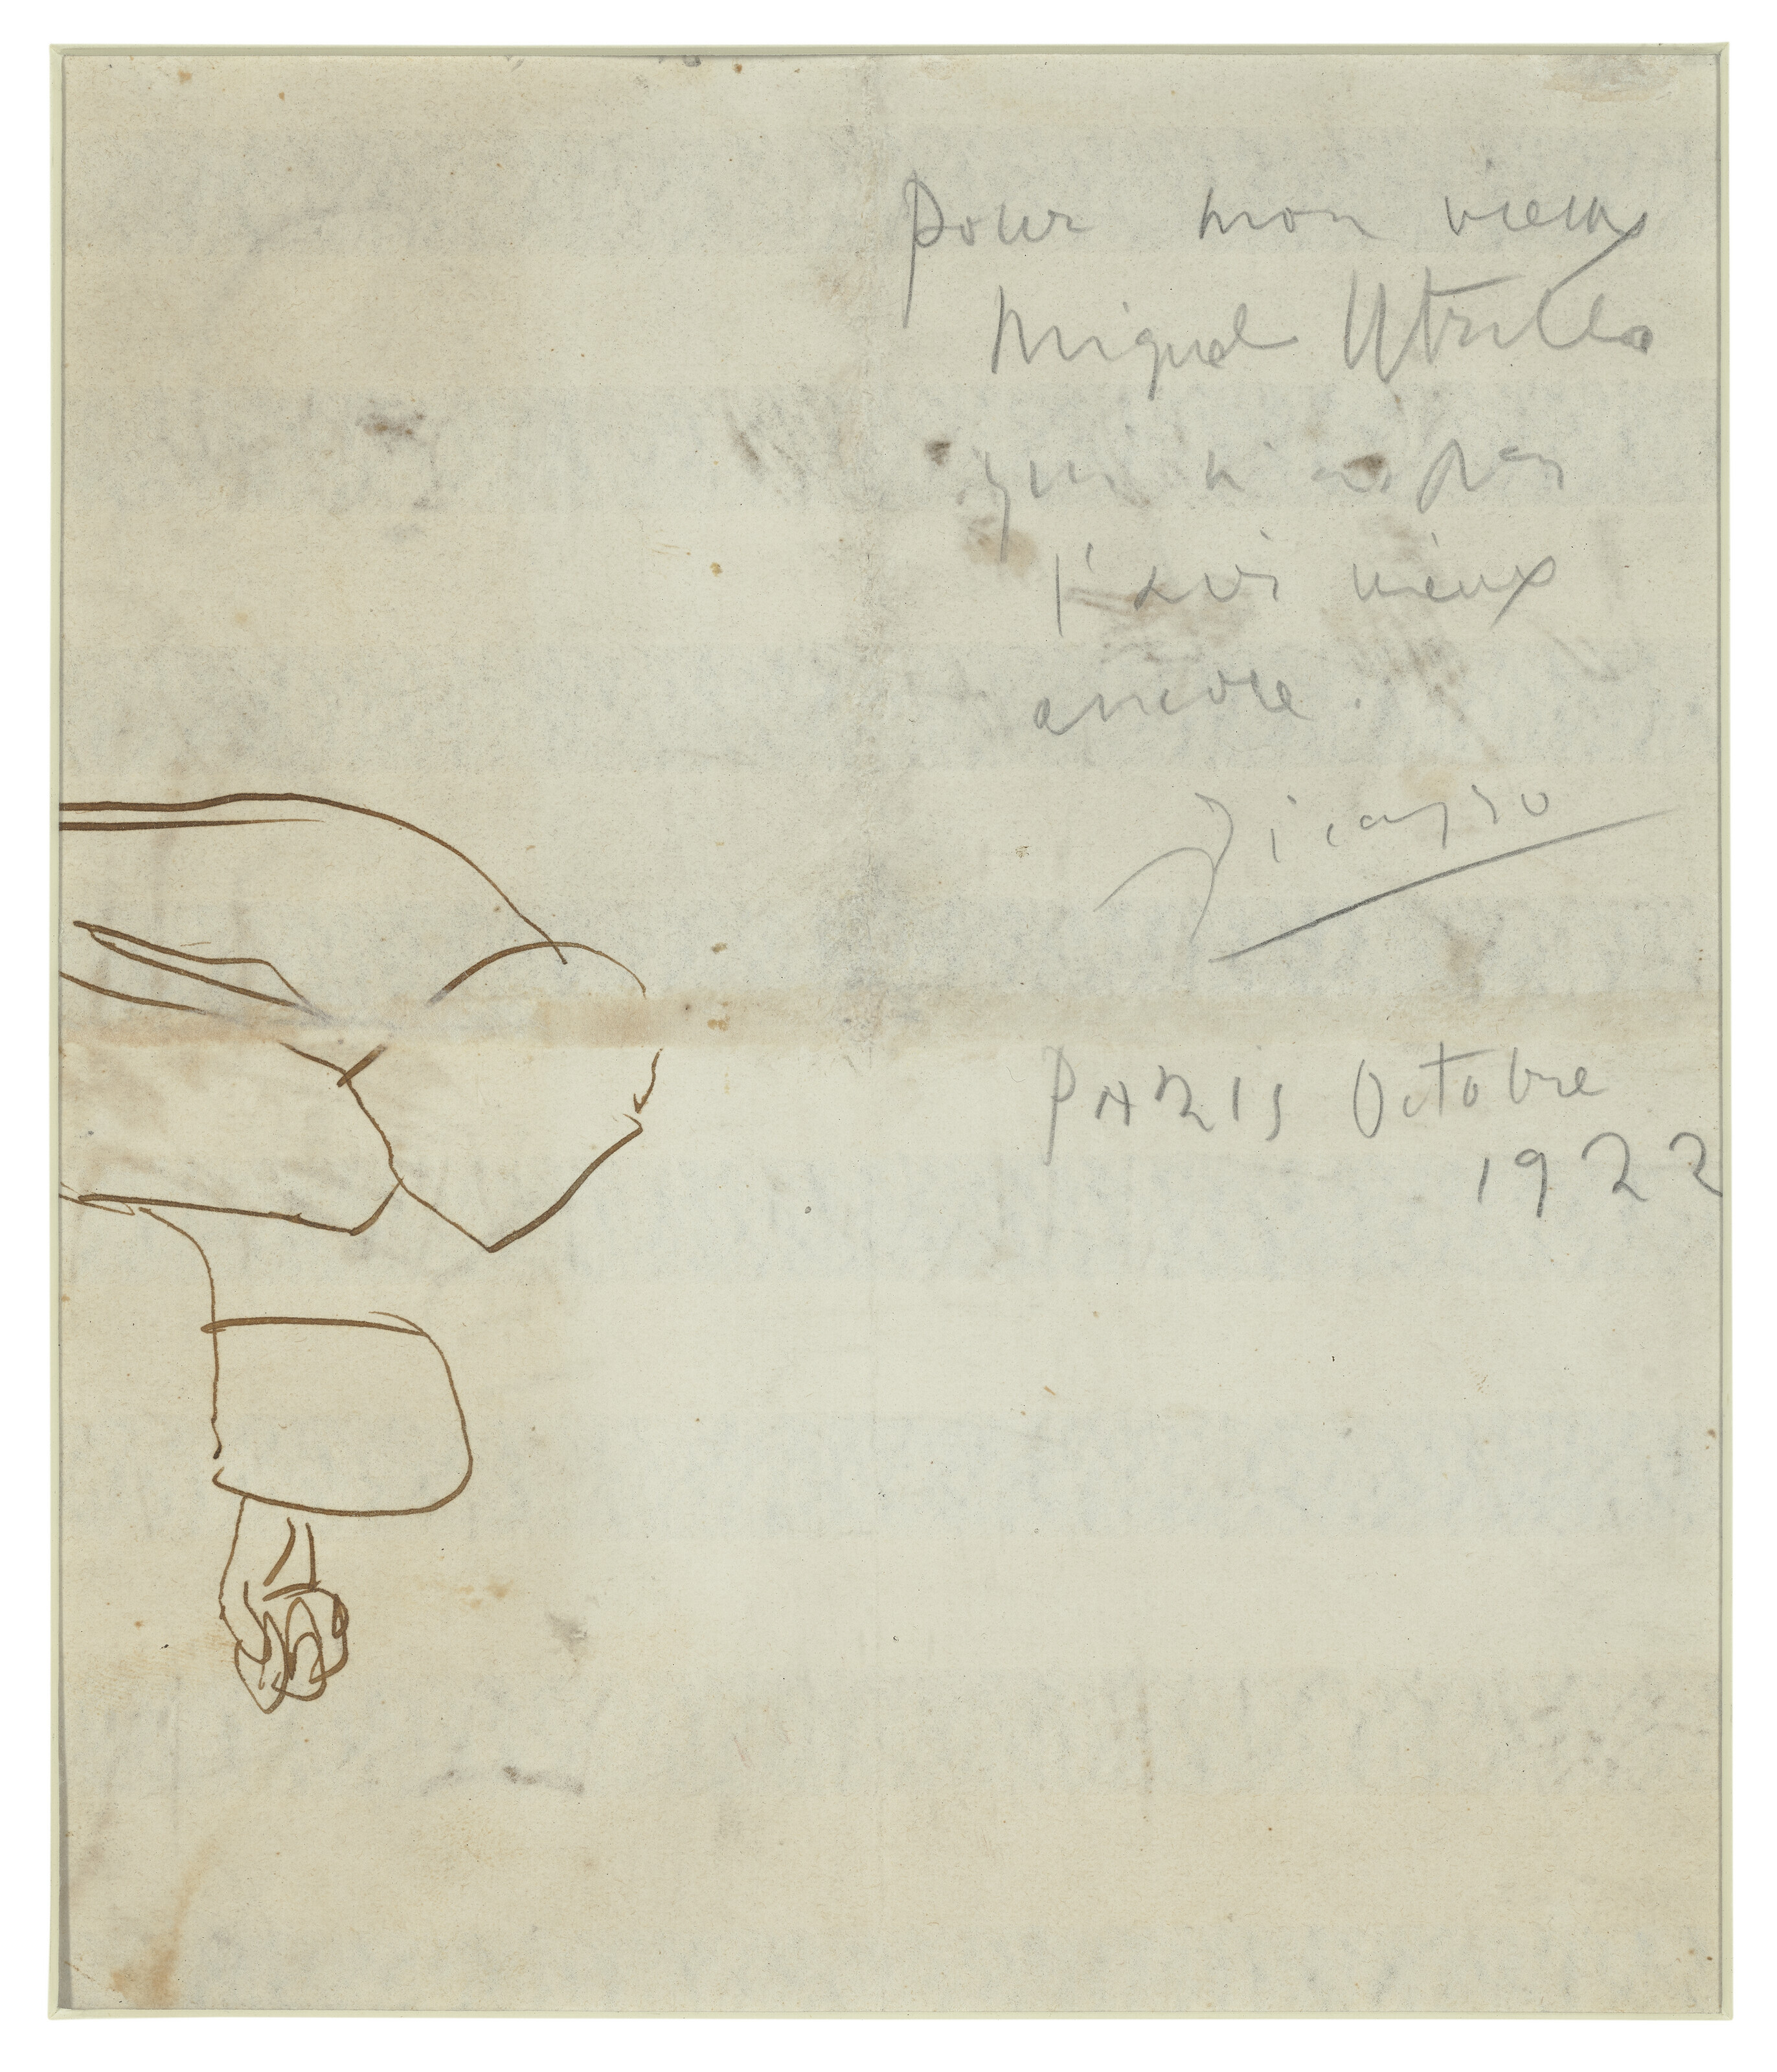 Pour mon vieux
Miguel Utrillo
qui n'a pas
l'air vieux
encore.
Picasso
PARIS Octobre
1922